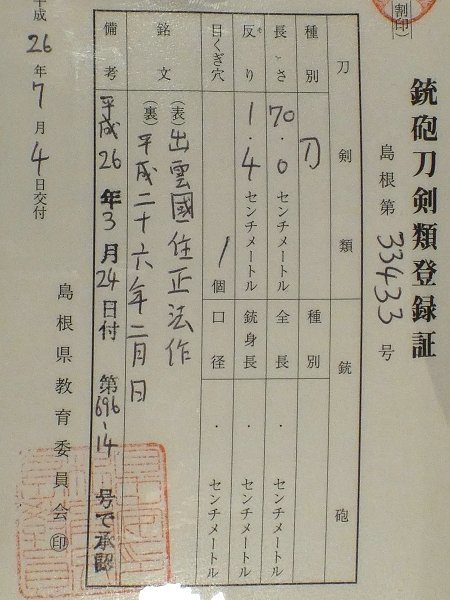 銃砲刀剣類登録証
(割印)
島根第33433号
刀剣類
銃砲
種別 刀
種別
長さ 70.0センチメートル
全長 .センチメートル
反り 1.4センチメートル
銃身長 .センチメートル
目くぎ穴 1個
口径 .センチメートル
銘文
(表)出雲國住正法作
(裏)平成二十六年二月日
備考 平成26年3月24日付 第696-14号で承認
平成26年7月4日交付
島根県教育委員会㊞